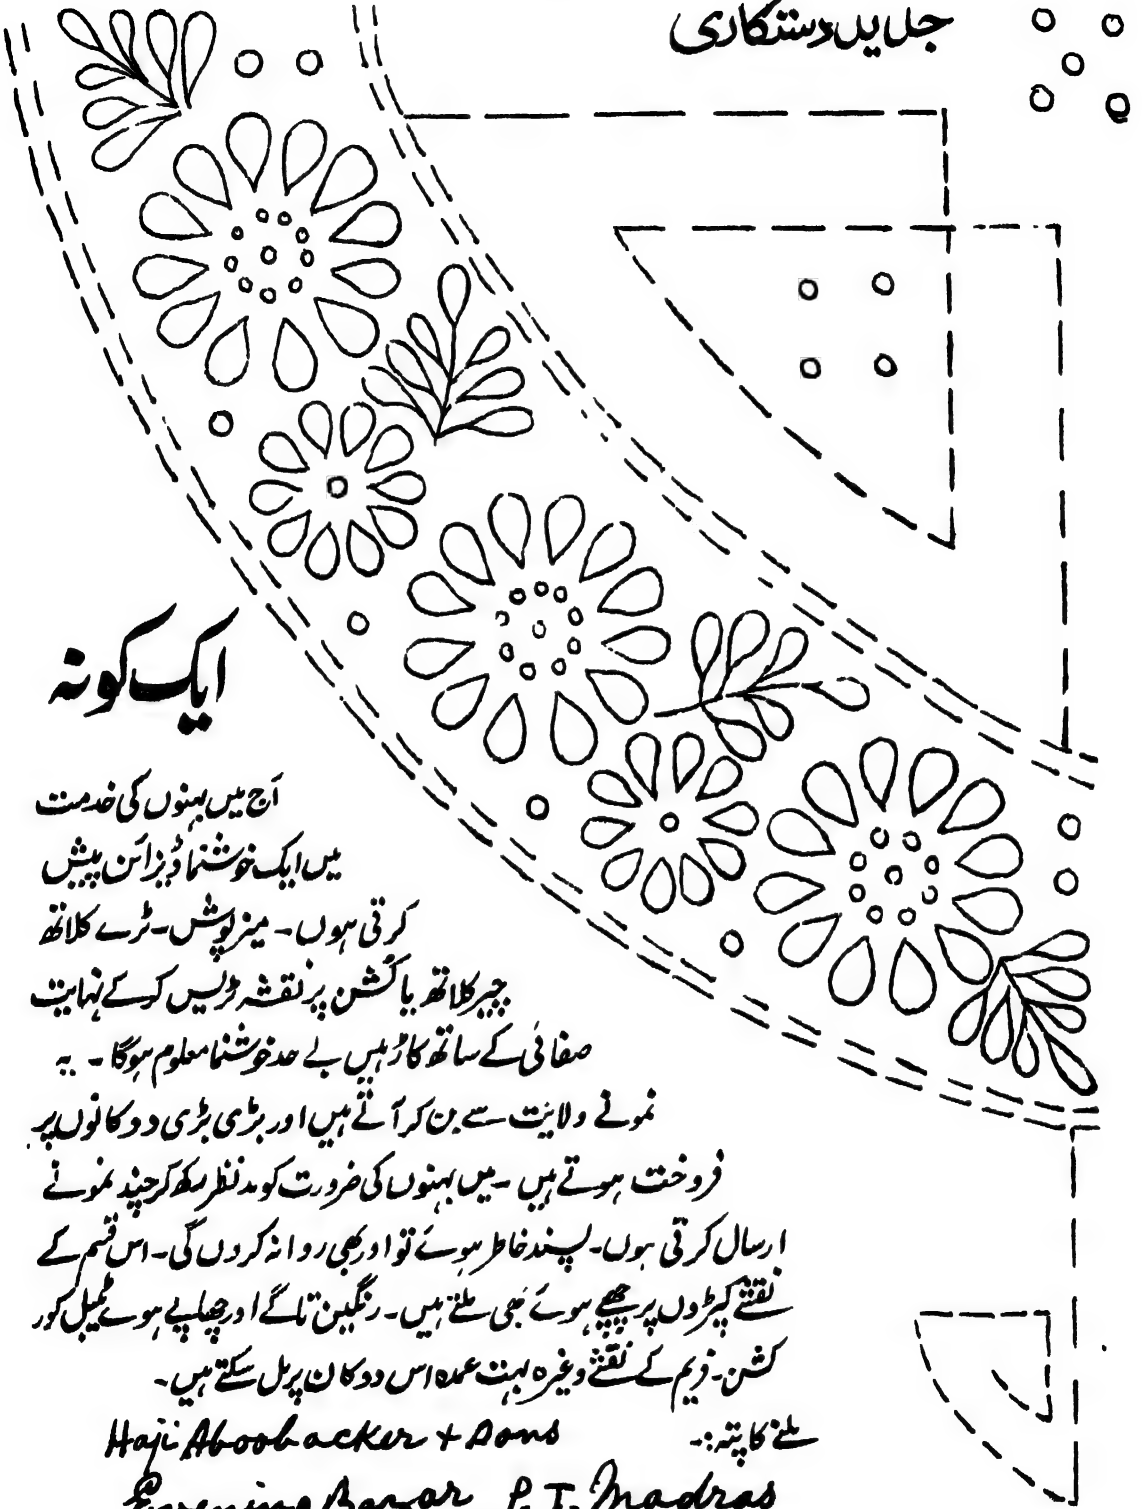 جدید دستکاری
ایک کونہ
آج میں بہنوں کی خدمت
میں ایک خوشنما ڈیزائن پیش
کرتی ہوں۔ میز پوش۔ ٹرے کلاتھ
چیر کلاتھ یا کشن پر نقشہ ٹریس کر کے نہایت
صفائی کے ساتھ کاڑہیں بے حد خوشنما معلوم ہوگا۔ یہ
نمونے ولایت سے بن کر آتے ہیں اور بڑی بڑی دوکانوں پر
فروخت ہوتے ہیں۔ میں بہنوں کی ضرورت کو مدنظر رکھ کر چند نمونے
ارسال کرتی ہوں۔ پسند خاطر ہوئے تو اور بھی روانہ کروں گی۔ اس قسم کے
نقشے کپڑوں پر چھپے ہوئے بھی ملتے ہیں۔ رنگین تاگے اور چھاپے ہوئے ٹیبل کور
کشن۔ فریم کے نقشے وغیرہ بہت عمدہ اس دوکان پر مل سکتے ہیں۔
ملنے کا پتہ:۔
Haji Aboobacker + Sons
Evening Bazar P. T. Madras